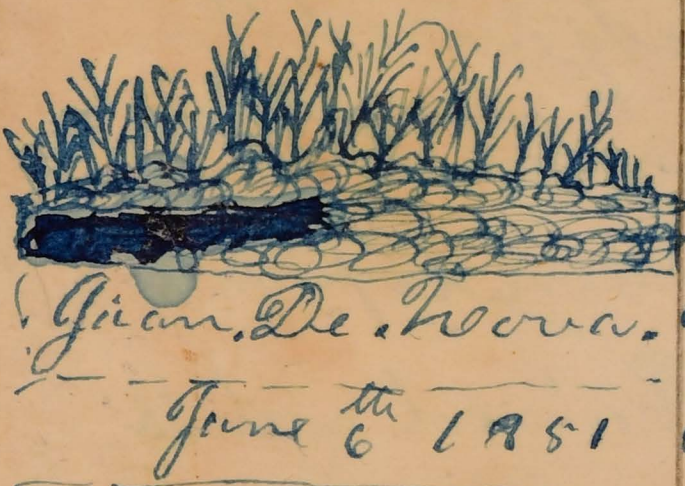 Juan. De. Nova.
June 6th 1851